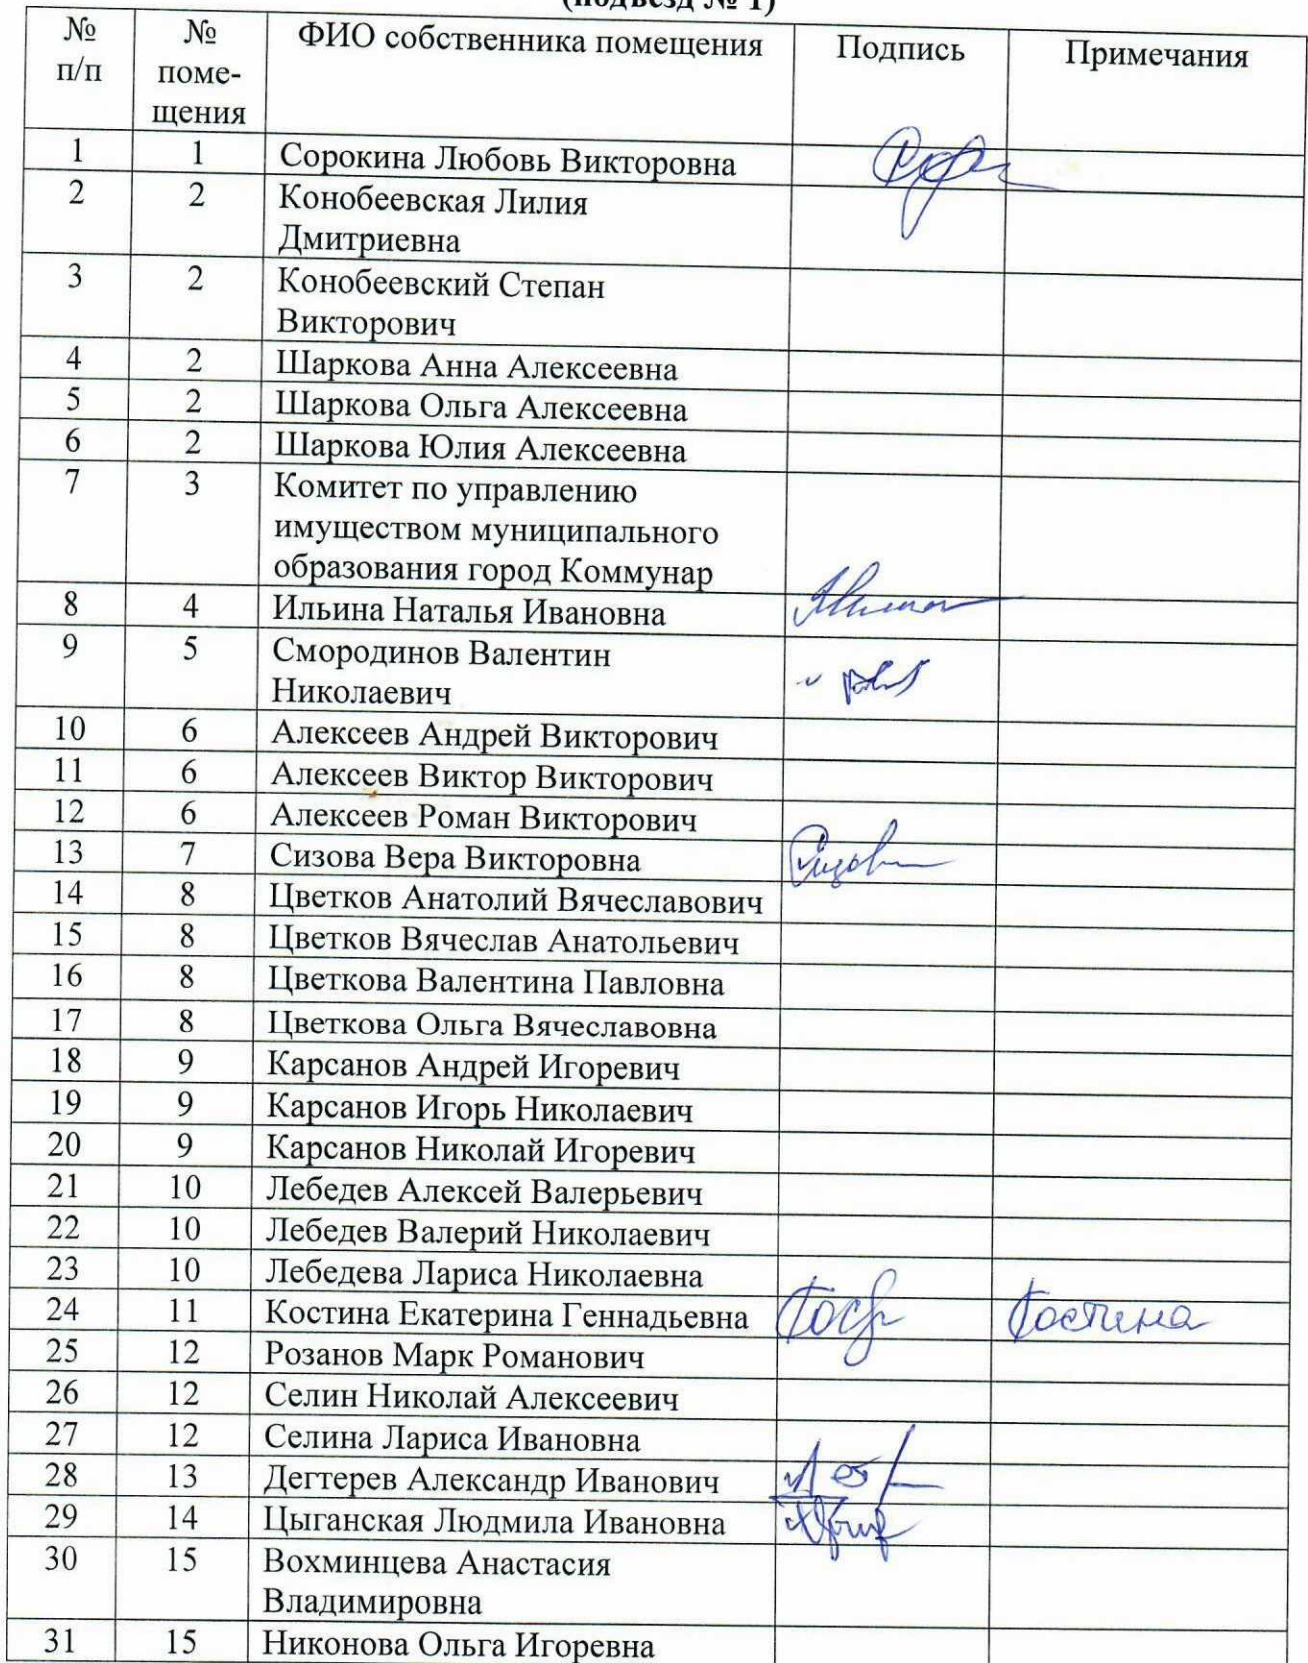 (подъезд № 1)
№ п/п № поме-щения ФИО собственника помещения Подпись Примечания
1 1 Сорокина Любовь Викторовна
2 2 Конобеевская Лилия
Дмитриевна
3 2 Конобеевский Степан
Викторович
4 2 Шаркова Анна Алексеевна
5 2 Шаркова Ольга Алексеевна
6 2 Шаркова Юлия Алексеевна
7 3 Комитет по управлению
имуществом муниципального
образования город Коммунар
8 4 Ильина Наталья Ивановна
9 5 Смородинов Валентин
Николаевич
10 6 Алексеев Андрей Викторович
11 6 Алексеев Виктор Викторович
12 6 Алексеев Роман Викторович
13 7 Сизова Вера Викторовна
14 8 Цветков Анатолий Вячеславович
15 8 Цветков Вячеслав Анатольевич
16 8 Цветкова Валентина Павловна
17 8 Цветкова Ольга Вячеславовна
18 9 Карсанов Андрей Игоревич
19 9 Карсанов Игорь Николаевич
20 9 Карсанов Николай Игоревич
21 10 Лебедев Алексей Валерьевич
22 10 Лебедев Валерий Николаевич
23 10 Лебедева Лариса Николаевна
24 11 Костина Екатерина Геннадьевна Костина
25 12 Розанов Марк Романович
26 12 Селин Николай Алексеевич
27 12 Селина Лариса Ивановна
28 13 Дегтерев Александр Иванович
29 14 Цыганская Людмила Ивановна
30 15 Вохминцева Анастасия
Владимировна
31 15 Никонова Ольга Игоревна